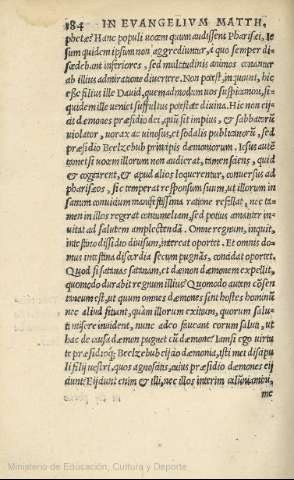 184 IN EVANGELIVM MATTH.
phetæ? Hanc populi uocem quum audissent Pharisei, Ie
sum quidem ipsum non aggrediuntur, à quo semper di-
scedebant inferiores, sed multitudinis animos conantur
ab illius admiratione diuertere. Non potest, inquiunt, hic
esse filius ille Dauid, quemadmodum uos suspicamini, si-
quidem ille ueniet suffultus potestate diuina. Hic non eijcit
dæmones præsidio dei, quũ sit impius, & sabbatorũ
uiolator, uorax ac uinosus, et sodalis publicanorũ, sed
præsidio Beelzebub principis dæmoniorum. Iesus autẽ
tametsi uocem illorum non audierat, tamen sciens, quid
& cogitarent, & apud alios loquerentur, conuersus ad
phariseos, sic temperat responsum suum, ut illorum in
sanum conuicium manifestissima ratione refellat, nec ta
men in illos regerat contumeliam, sed potius amanter in-
uitat ad salutem amplectendã. Omne regnum, inquit,
intestino dissidio diuisum, intereat oportet. Et omnis do
mus intestina discordia secum pugnãs, concidat oportet.
Quod si satanas satanam, et dæmon dæmonem expellit,
quomodo durabit regnum illius? Quomodo autem cõsen
taneum est, ut quum omnes dæmones sint hostes hominũ
nec aliud sitiant, quàm illorum exitium, quorum salu-
ti misere inuident, nunc adeo faueant eorum saluti, ut
hac de causa dæmon pugnet cũ dæmone? Iam si ego virtu
te præsidioq; Beelzebub eijcio dæmonia, isti mei discipu
li filij uestri, quos agnoscitis, cuius præsidio dæmones eij
ciunt? Eijciunt enim & illi, nec illos interim calũniamini,
nec
Ministerio de Educación, Cultura y Deporte